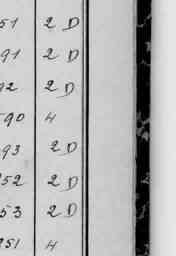 51 2 D
91 2 D
92 2 D
590 4
93 2 D
952 2 D
53 2 D
951 4